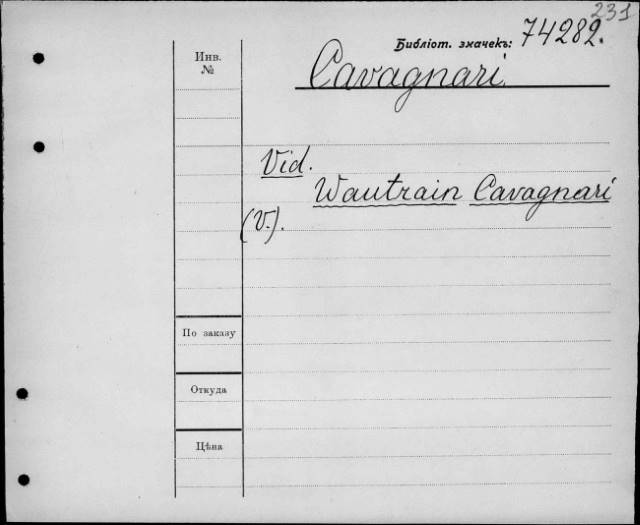 231
Библіот. значекъ: 74282.
Инв.
№
Cavagnari
Vid.
Wautrain Cavagnari
(V.).
По заказу
Откуда
Цѣна